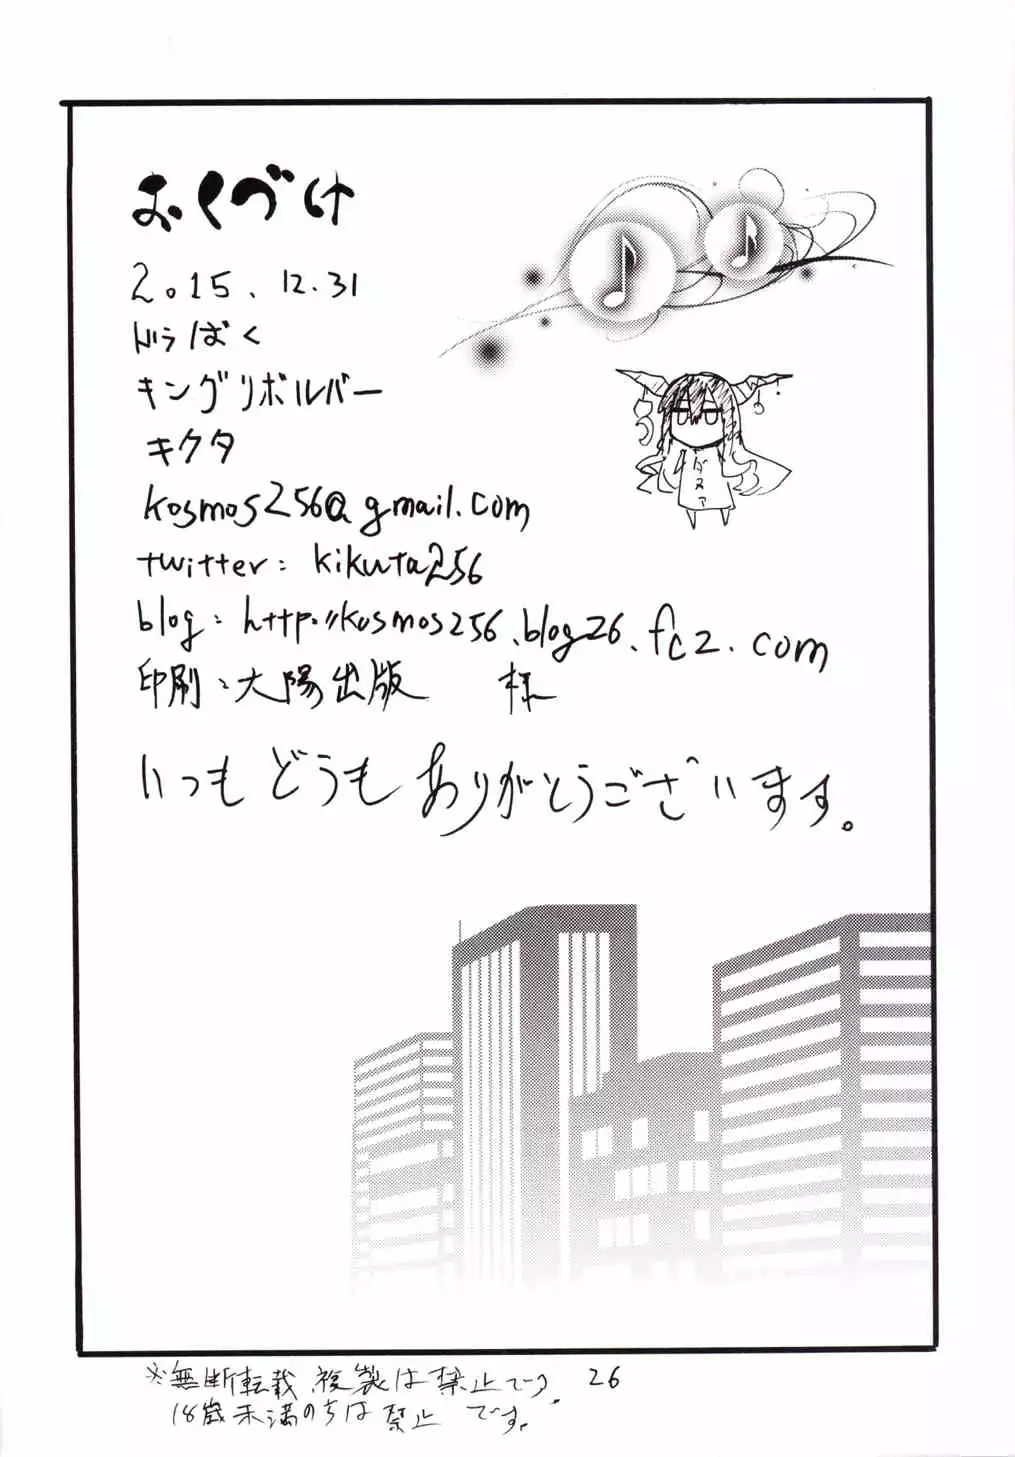 おくづけ
2015.12.31
どらばく
キングリボルバー
キクタ
kosmos256@gmail.com
twitter: kikuta256
blog: http://kosmos256.blog26.fc2.com
印刷：大陽出版 様
いつもどうもありがとうございます。
※無断転載、複製は禁止です。 26
18歳未満のちは禁止です。